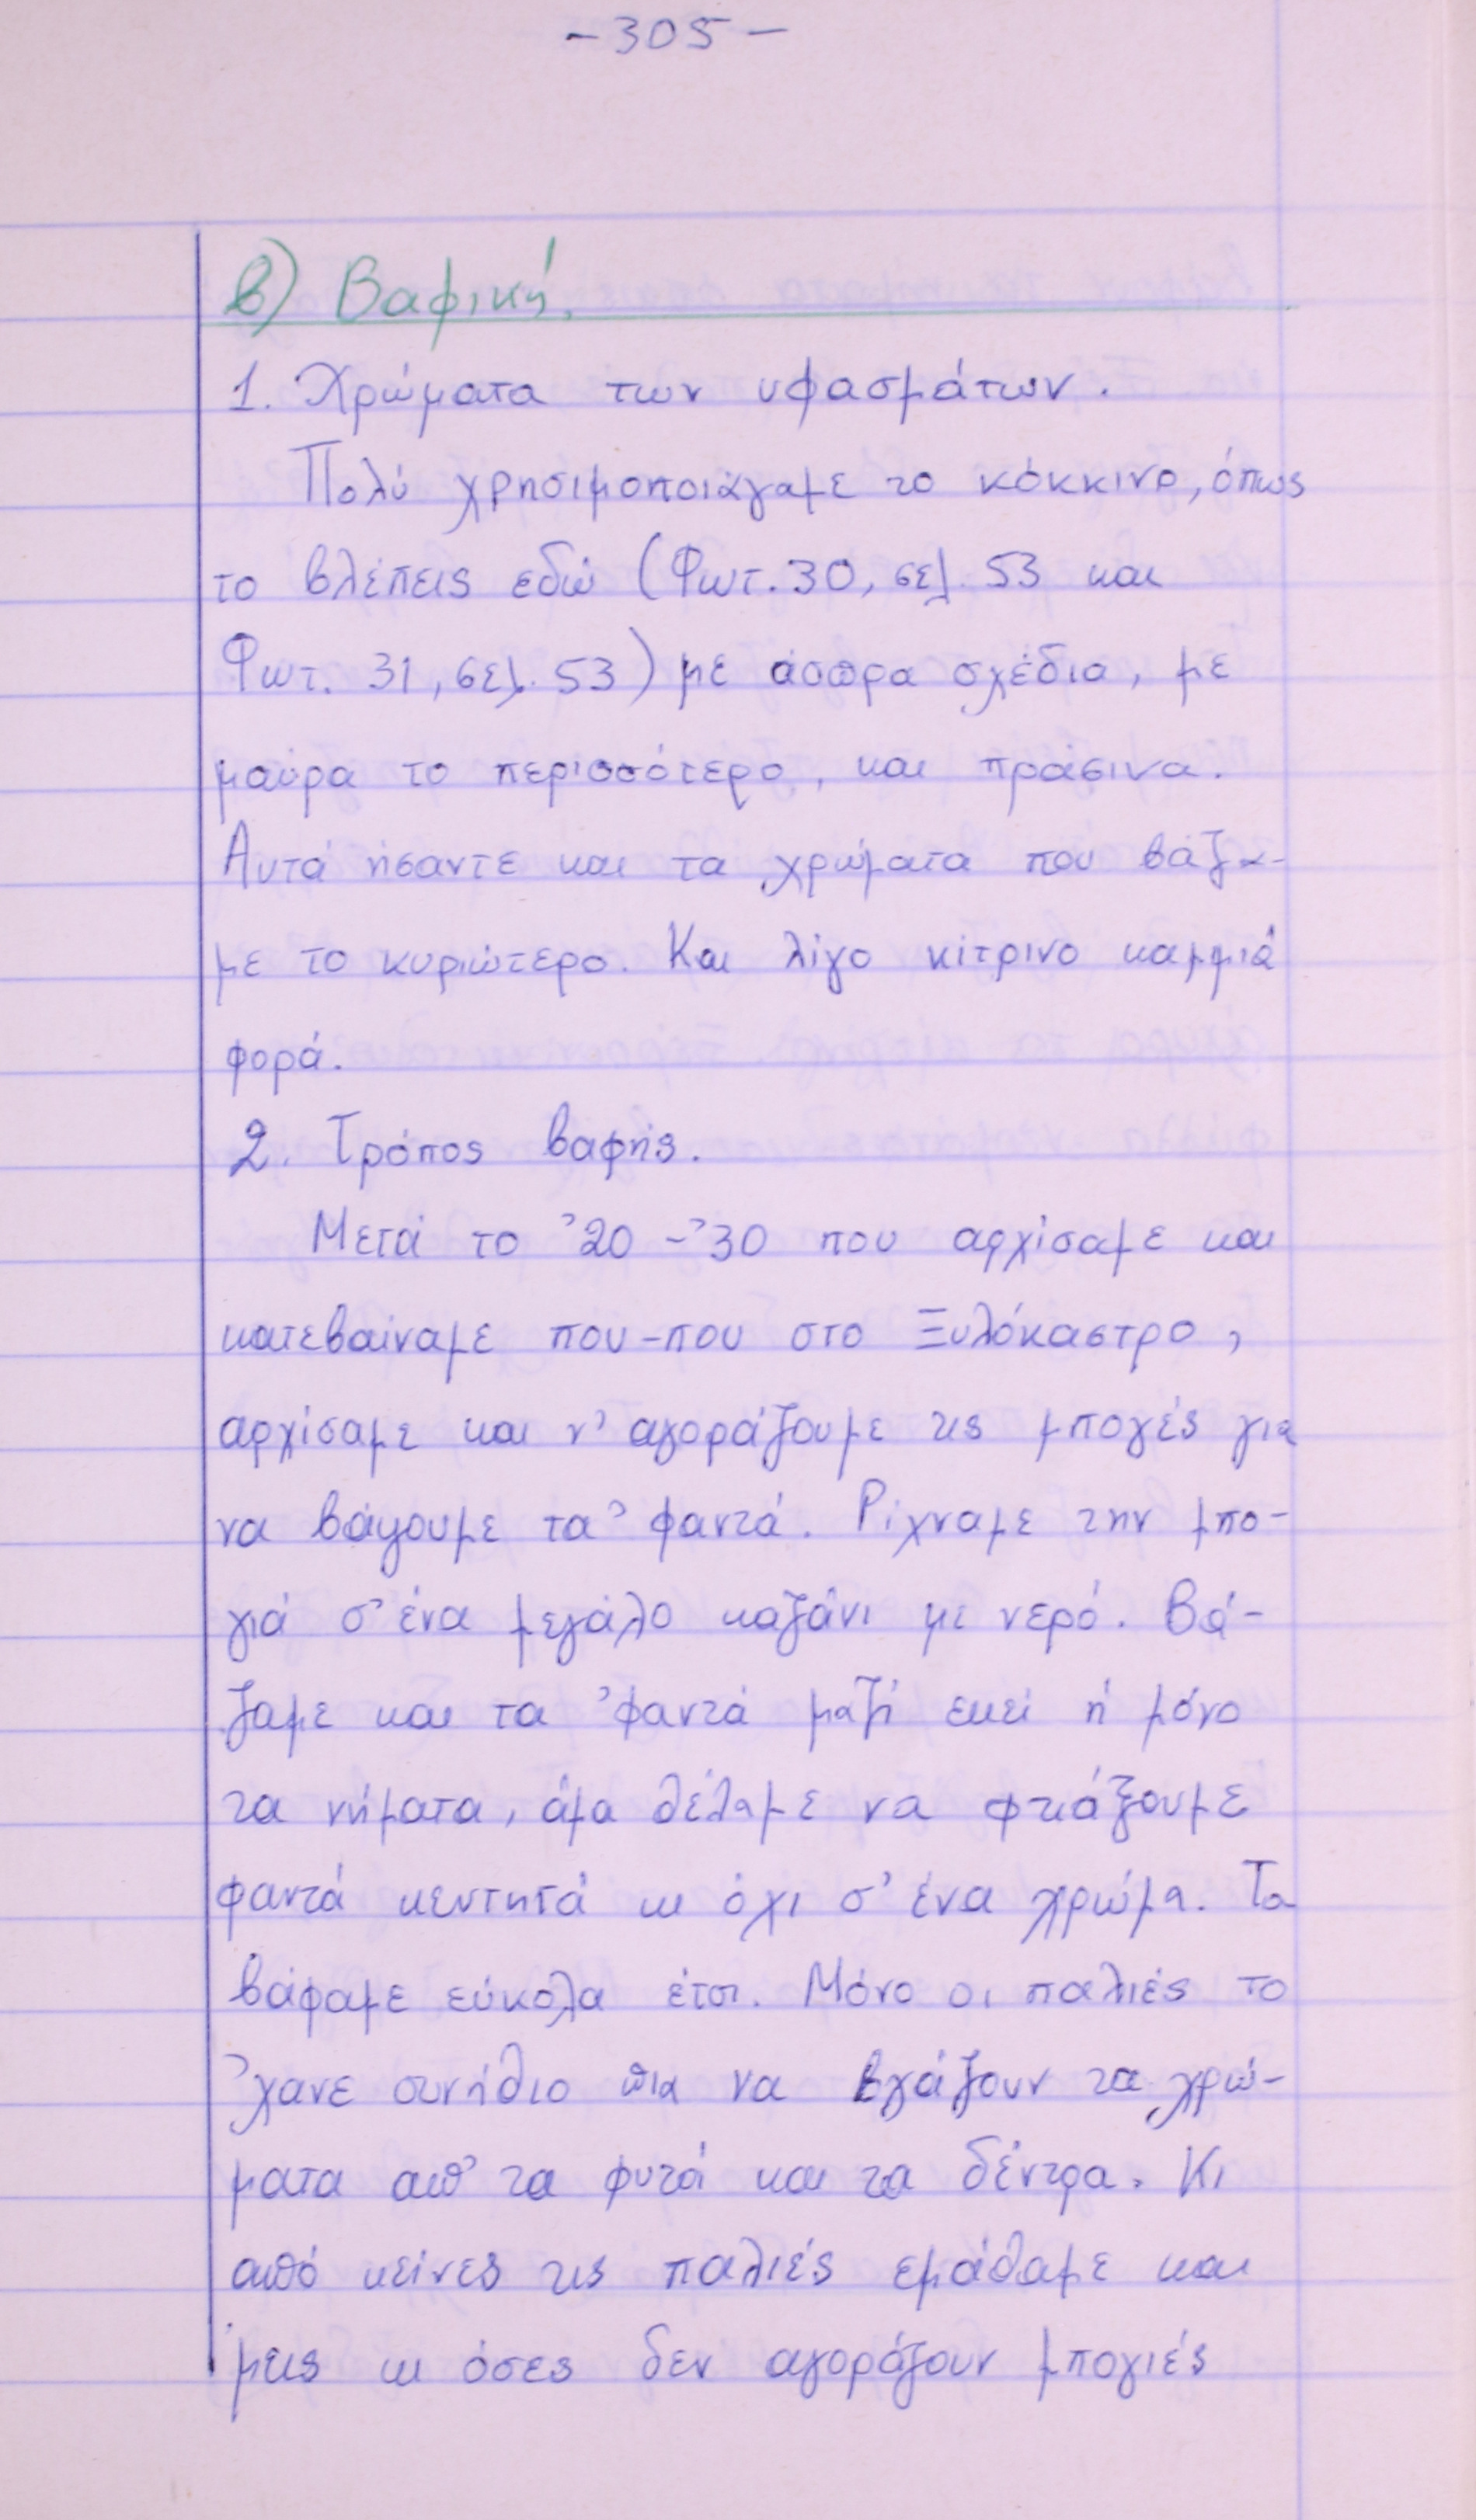 -305-
β) Βαφική.
1. Χρώματα των υφασμάτων.
Πολύ χρησιμοποιάγαμε το κόκκινο, όπως
το βλέπεις εδώ (Φωτ. 30, σελ. 53 και
Φωτ. 31, σελ. 53) με άσπρα σχέδια, με
μαύρα το περισσότερο, και πράσινα.
Αυτά ήσαντε και τα χρώματα που βάζα-
με το κυριώτερο. Και λίγο κίτρινο καμμιά
φορά.
2. Τρόπος βαφής.
Μετά το '20 -'30 που αρχίσαμε και
κατεβαίναμε που-που στο Ξυλόκαστρο,
αρχίσαμε και ν' αγοράζουμε τις μπογές για
να βάψουμε τα 'φαντά. Ρίχναμε την μπο-
γιά σ' ένα μεγάλο καζάνι με νερό. Βά-
ζαμε και τα 'φαντά μαζί εκεί ή μόνο
τα νήματα, άμα θέλαμε να φτιάξουμε
φαντά κεντητά κι όχι σ' ένα χρώμα. Τα
βάφαμε εύκολα έτσι. Μόνο οι παλιές το
'χανε συνήθιο πια να βγάζουν τα χρώ-
ματα απ' τα φυτά και τα δέντρα. Κι
από κείνες τις παλιές εμάθαμε και
'μεις κι όσες δεν αγοράζουν μπογιές